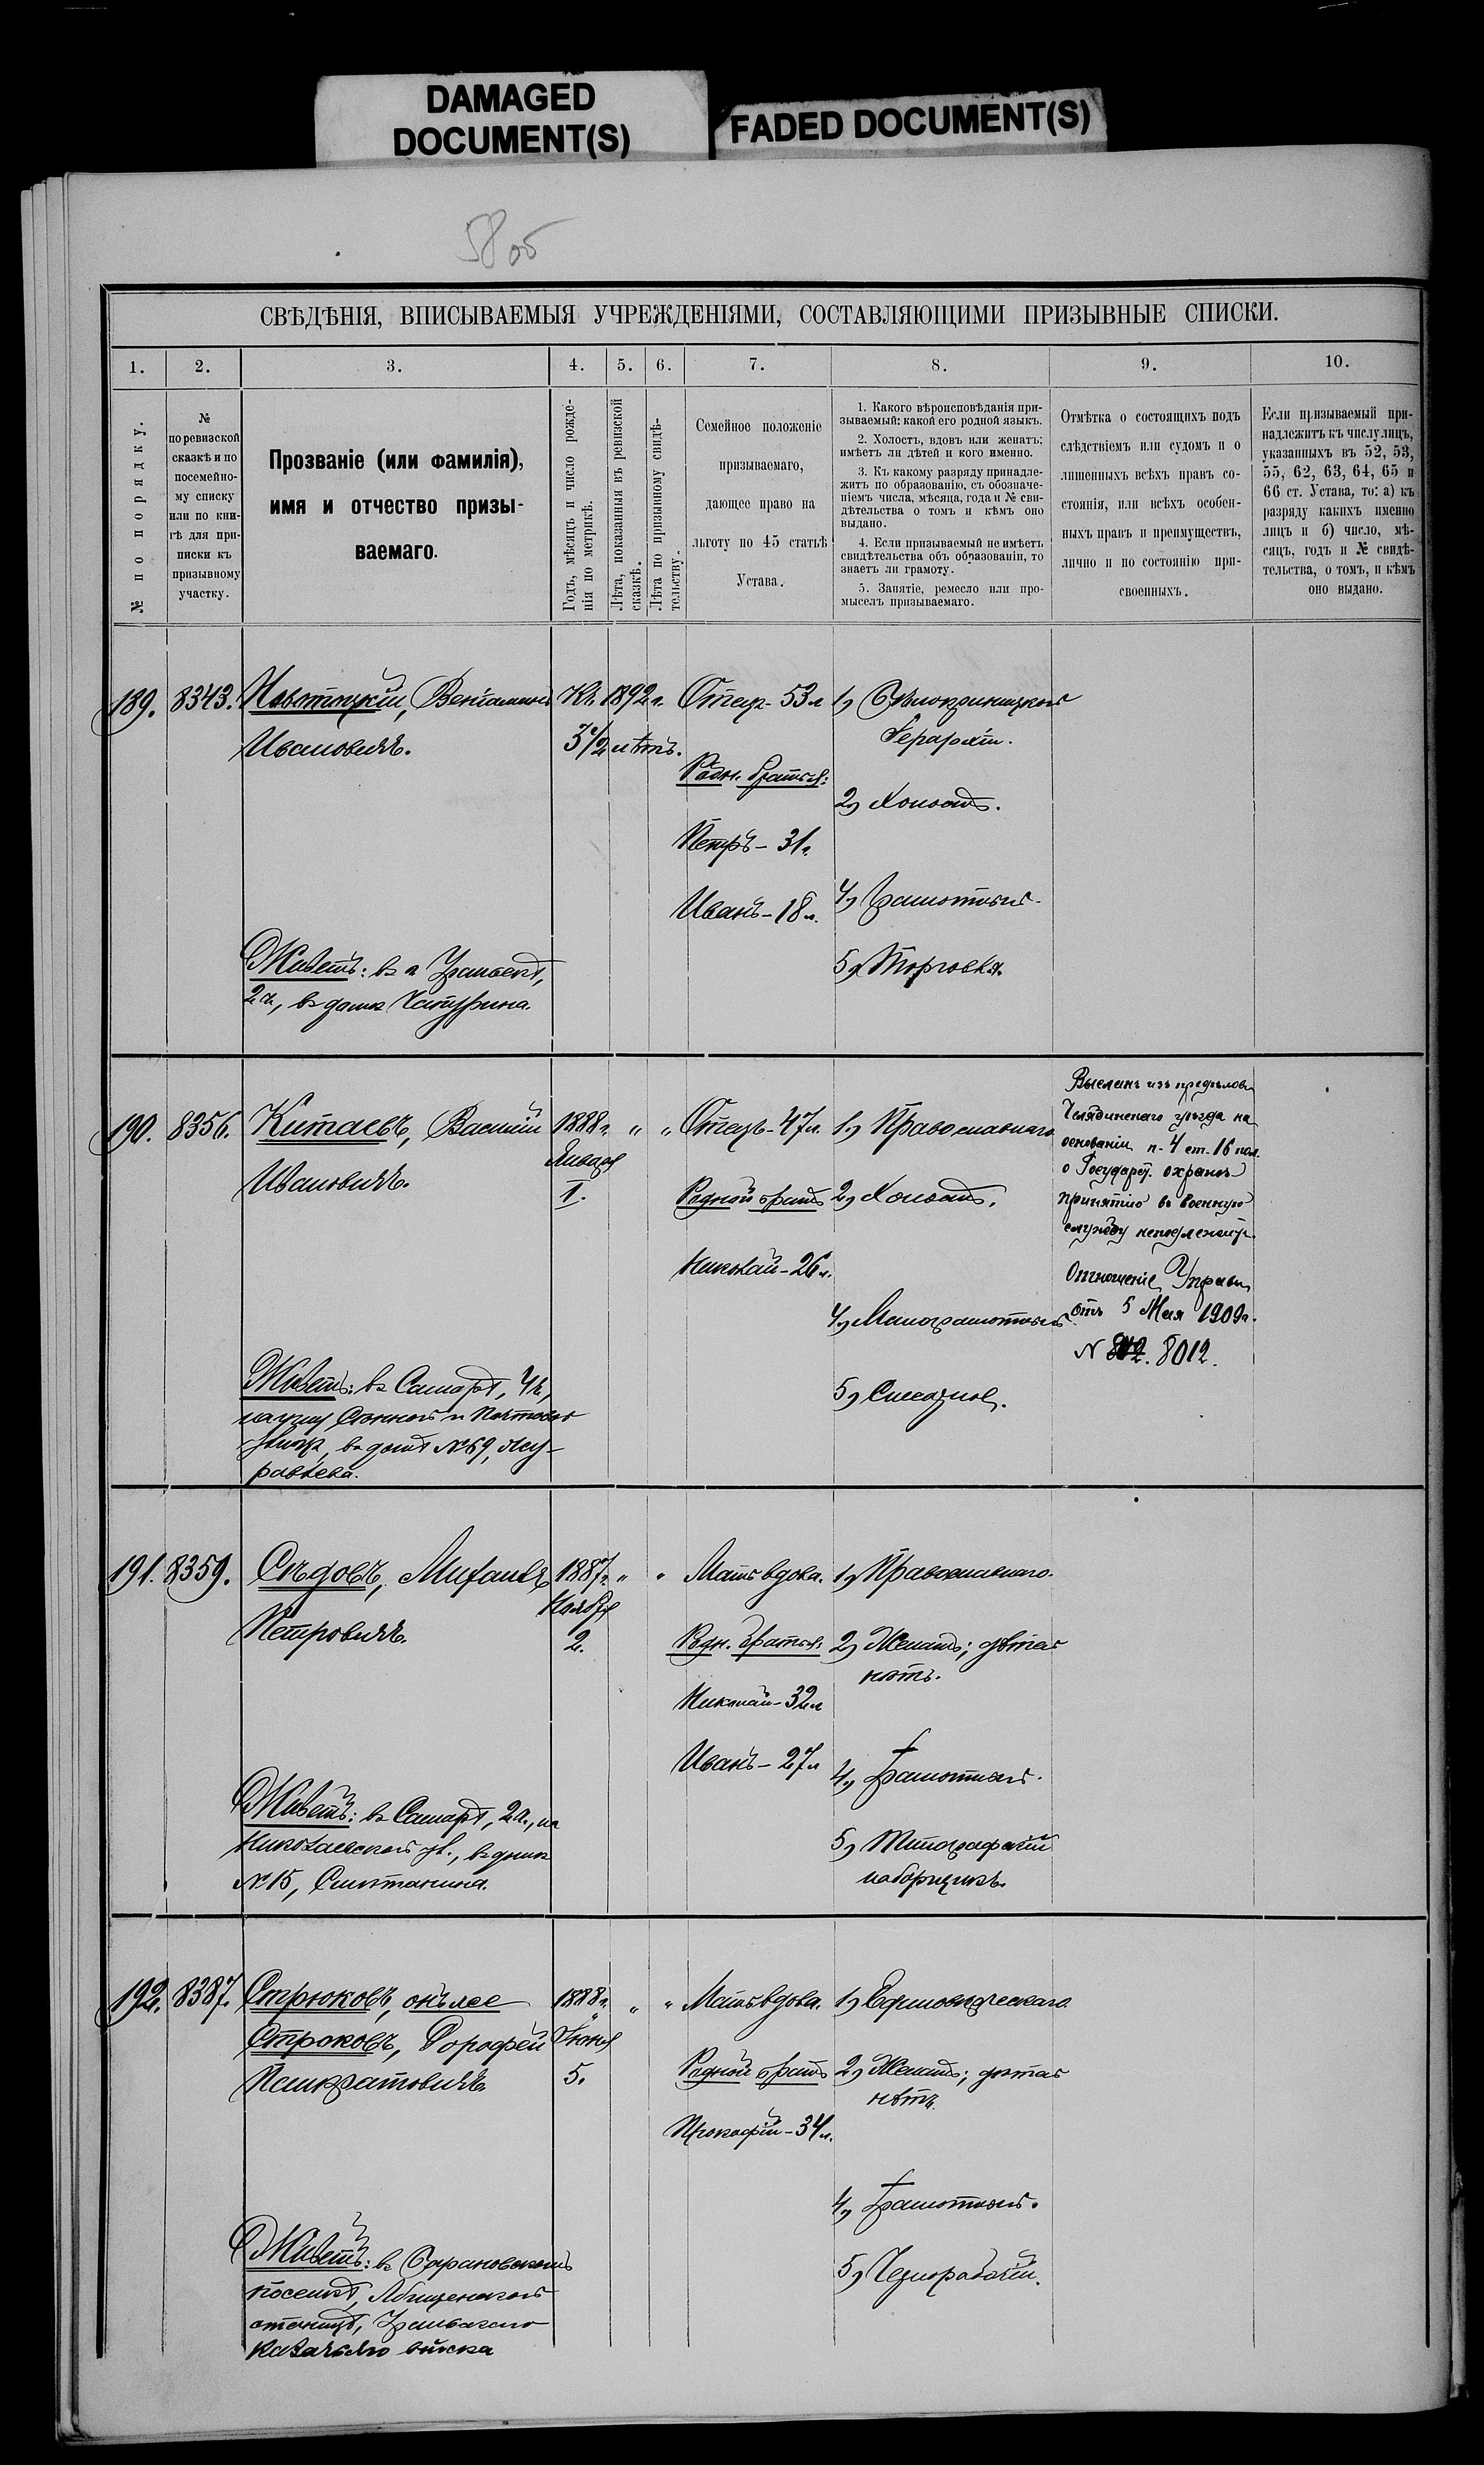 DAMAGED
DOCUMENT(S)
FADED DOCUMENT(S)
58 об
СВѢДѢНІЯ, ВПИСЫВАЕМЫЯ УЧРЕЖДЕНІЯМИ, СОСТАВЛЯЮЩИМИ ПРИЗЫВНЫЕ СПИСКИ.
1.
2.
3.
4.
5.
6.
7.
8.
9.
10.
№ по порядку.
№
по ревизской
сказкѣ и по
посемейно-
му списку
или по кни-
гѣ для при-
писки къ
призывному
участку.
Прозваніе (или фамилія),
имя и отчество призы-
ваемаго.
Годъ, мѣсяцъ и число рожде-
нія по метрикѣ.
Лѣта, показанныя въ ревизской
сказкѣ.
Лѣта по призывному свидѣ-
тельству.
Семейное положеніе
призываемаго,
дающее право на
льготу по 45 статьѣ
Устава.
1. Какого вѣроисповѣданія при-
зываемый: какой его родной языкъ.
2. Холостъ, вдовъ или женатъ:
имѣетъ ли дѣтей и кого именно.
3. Къ какому разряду принадле-
житъ по образованію, съ обозначе-
ніемъ числа, мѣсяца, года и № сви-
дѣтельства о томъ и кѣмъ оно
выдано.
4. Если призываемый не имѣетъ
свидѣтельства объ образованіи, то
знаетъ ли грамоту.
5. Занятіе, ремесло или про-
мыселъ призываемаго.
Отмѣтка о состоящихъ подъ
слѣдствіемъ или судомъ и о
лишенныхъ всѣхъ правъ со-
стоянія, или всѣхъ особен-
ныхъ правъ и преимуществъ,
лично и по состоянію при-
своенныхъ.
Если призываемый при-
надлежитъ къ числу лицъ,
указанныхъ въ 52, 53,
55, 62, 63, 64, 65 и
66 ст. Устава, то: а) къ
разряду какихъ именно
лицъ и б) число, мѣ-
сяцъ, годъ и № свидѣ-
тельства, о томъ, и кѣмъ
оно выдано.
189.
8343.
Веніаминъ
Ивановичъ.
Живетъ: въ г. Уральскѣ,
2 ч., въ домѣ
Къ 1892 г.
3 1/2 лѣтъ.
Отецъ - 53 л
Родн. братья:
Петръ - 31 г.
Иванъ - 18 л.
1) Бѣлокриницкой
Іерархіи.
2) Холостъ.
4) Грамотный.
5) Торговля.
190.
8356.
Китаевъ, Василій
Ивановичъ.
Живетъ: въ Самарѣ, 4 ч.,
на углу Сѣнной и Почтовой
улицъ, въ домѣ № 69, Му-
равьева.
1888 г.
Января
1.
" "
Отецъ - 47 л.
Родной братъ
Николай - 26 л.
1) Православнаго
2) Холостъ.
4) Малограмотный
5) Слесарное.
Высланъ изъ предѣловъ
Челябинскаго уѣзда на
основаніи п. 4 ст. 16 пол.
о Государст. охранѣ
принятію въ военную
службу неподлежитъ.
Отношеніе Управы
отъ 5 Мая 1909 г.
N 8012.
191.
8359.
Сѣдовъ, Михаилъ
Петровичъ.
Живетъ: въ Самарѣ, 2 ч., на
Николаевской ул., въ домѣ
№ 15,
1887 г.
Ноября
2.
" "
Мать вдова.
Родн. братья:
Николай - 32 л
Иванъ - 27 л
1) Православнаго.
2) Женатъ; дѣтей
нѣтъ.
4) Грамотный.
5) Типографскій
наборщикъ.
192.
8387.
Стрюковъ, онъ же
Строковъ, Дорофей
Панкратовичъ.
Живетъ: въ
поселкѣ, Лбищенской
станицѣ, Уральскаго
Казачьяго войска
1888 г.
Іюня
5.
" "
Мать вдова.
Родной братъ
Прокофій - 34 л.
1) Единовѣрческаго.
2) Женатъ; дѣтей
нѣтъ.
4) Грамотный.
5) Чернорабочій.